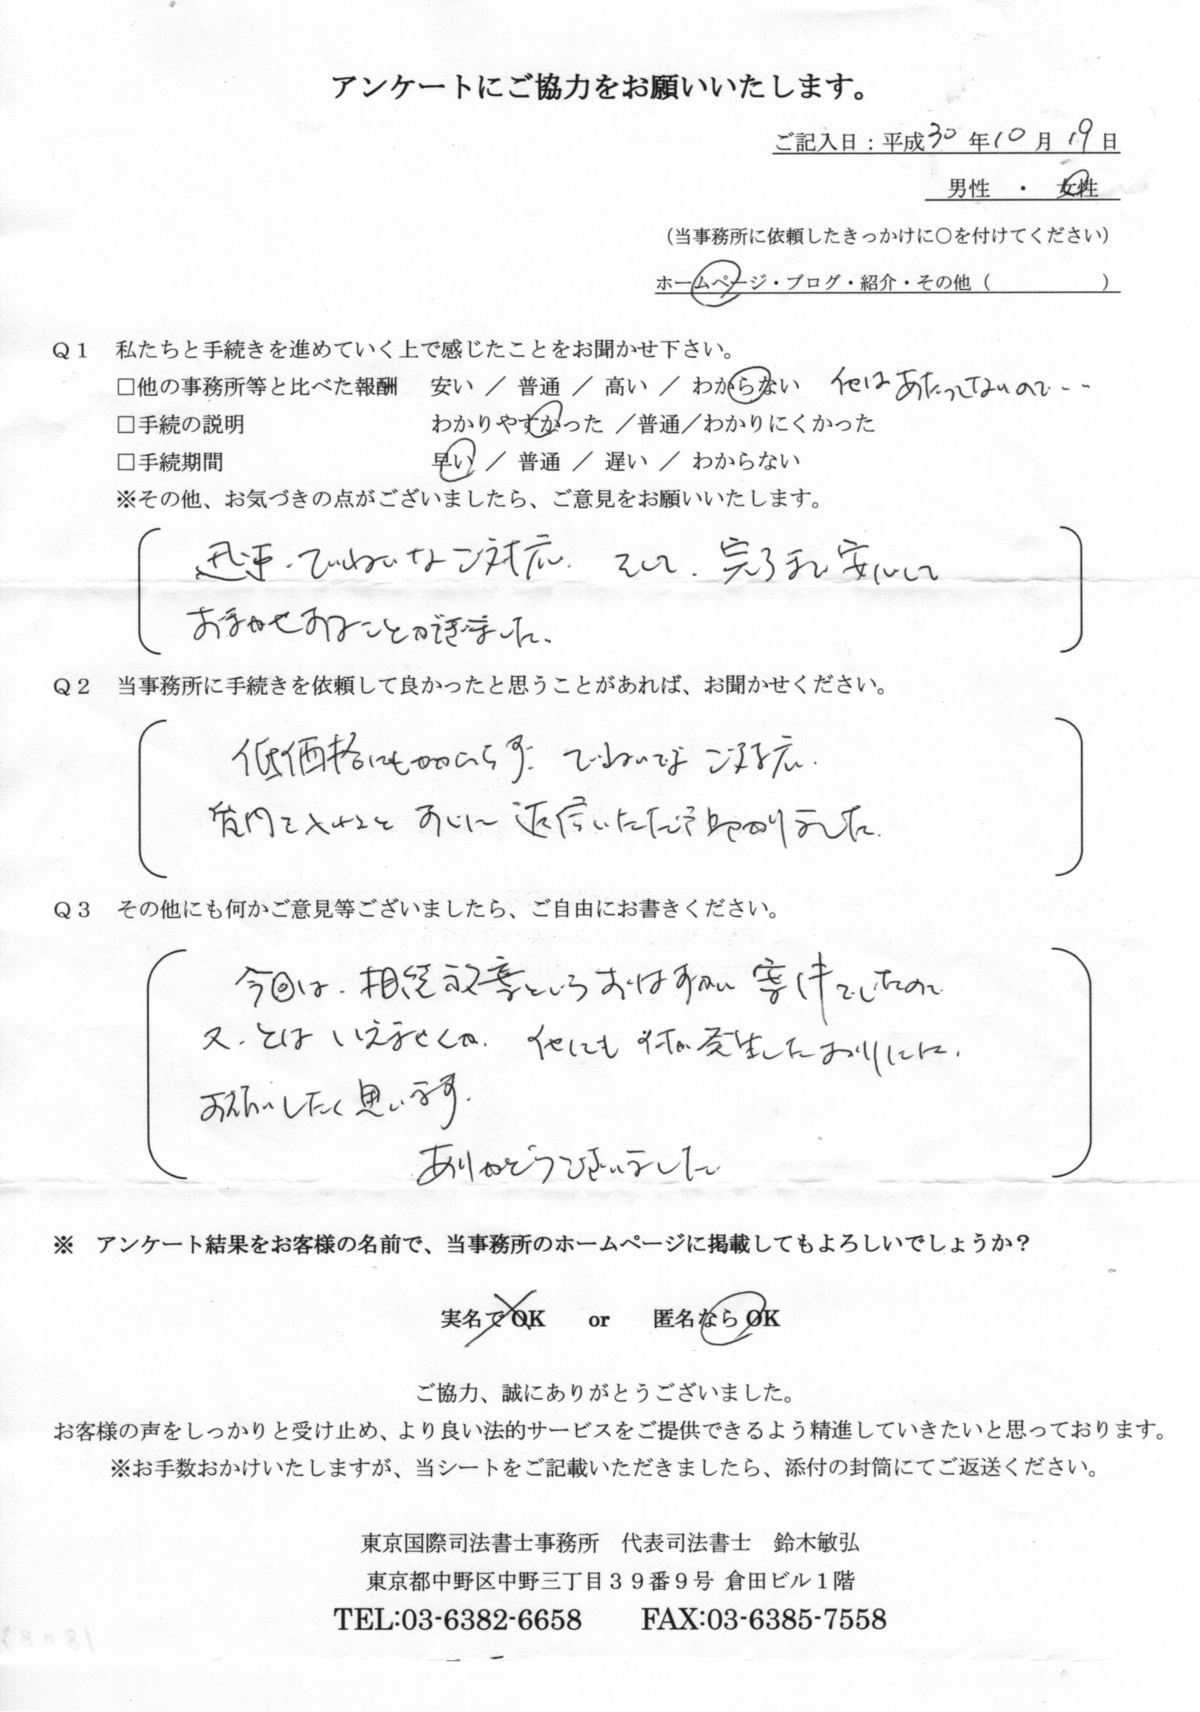 アンケートにご協力をお願いいたします。
ご記入日：平成30年10月19日
男性 ・ 女性
（当事務所に依頼したきっかけに○を付けてください）
ホームページ・ブログ・紹介・その他（ ）
Q１ 私たちと手続きを進めていく上で感じたことをお聞かせ下さい。
□他の事務所等と比べた報酬 安い ／ 普通 ／ 高い ／ わからない 他はあたってないので…
□手続の説明 わかりやすかった ／普通／わかりにくかった
□手続期間 早い ／ 普通 ／ 遅い ／ わからない
※その他、お気づきの点がございましたら、ご意見をお願いいたします。
迅速、ていねいなご対応、そして、完了まで安心して
おまかせすることができました。
Q２ 当事務所に手続きを依頼して良かったと思うことがあれば、お聞かせください。
低価格にもかかわらず、ていねいなご対応、
質問をすると すぐに 返信いただき助かりました。
Q３ その他にも何かご意見等ございましたら、ご自由にお書きください。
今回は、相続放棄という おはずかしい 案件でしたので
又、とは いえませんが、他にも 何か発生したおりには、
お願いしたく思います。
ありがとうございました
※ アンケート結果をお客様の名前で、当事務所のホームページに掲載してもよろしいでしょうか？
実名でOK or 匿名ならOK
ご協力、誠にありがとうございました。
お客様の声をしっかりと受け止め、より良い法的サービスをご提供できるよう精進していきたいと思っております。
※お手数おかけいたしますが、当シートをご記載いただきましたら、添付の封筒にてご返送ください。
東京国際司法書士事務所 代表司法書士 鈴木敏弘
東京都中野区中野三丁目３９番９号 倉田ビル１階
TEL:03-6382-6658 FAX:03-6385-7558